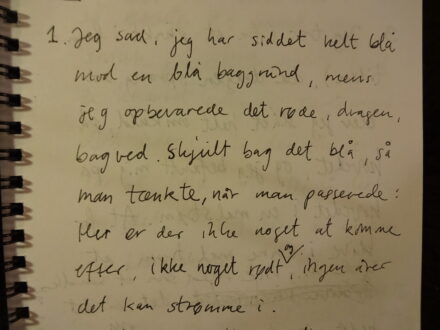 1. Jeg sad, jeg har siddet helt blå
mod en blå baggrund, mens
jeg opbevarede det røde, dragen,
bagved. Skjult bag det blå, så
man tænkte, når man passerede:
Her er der ikke noget at komme
efter, ikke noget rødt, og ingen årer
det kan strømme i.